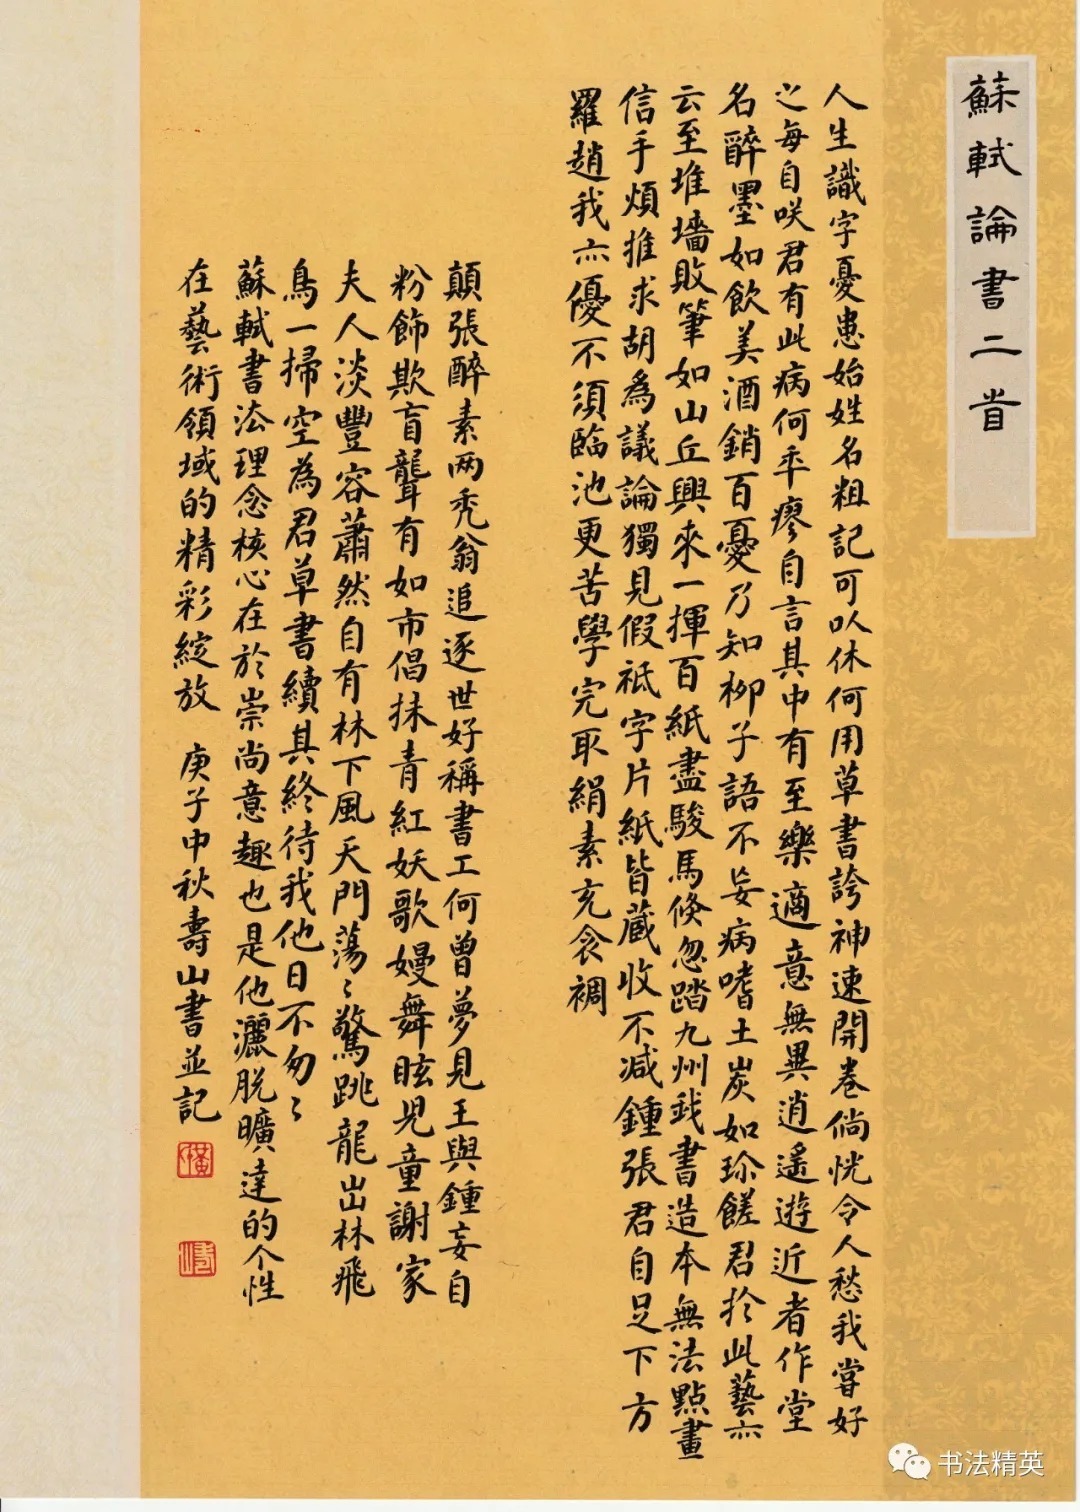 蘇軾論書二首
人生識字憂患始姓名粗記可以休何用草書誇神速開卷倘恍令人愁我嘗好
之每自咲君有此病何年瘳自言其中有至樂適意無異逍遙遊近者作堂
名醉墨如飲美酒銷百憂乃知柳子語不妄病嗜土炭如珎饈君於此藝亦
云至堆墻敗筆如山丘興來一揮百紙盡駿馬倏忽踏九州我書造本無法點畫
信手煩推求胡為議論獨見假祗字片紙皆藏收不減鍾張君自足下方
羅趙我亦優不須臨池更苦學完取絹素充衾裯
顛張醉素两禿翁追逐世好稱書工何曾夢見王與鍾妄自
粉飾欺盲聾有如市倡抹青紅妖歌嫚舞眩児童謝家
夫人淡豐容蕭然自有林下風天門蕩〻驚跳龍出林飛
鳥一掃空為君草書續其終待我他日不匆〻
蘇軾書法理念核心在於崇尚意趣也是他灑脱曠達的个性
在藝術領域的精彩綻放 庚子中秋壽山書並記
书法精英